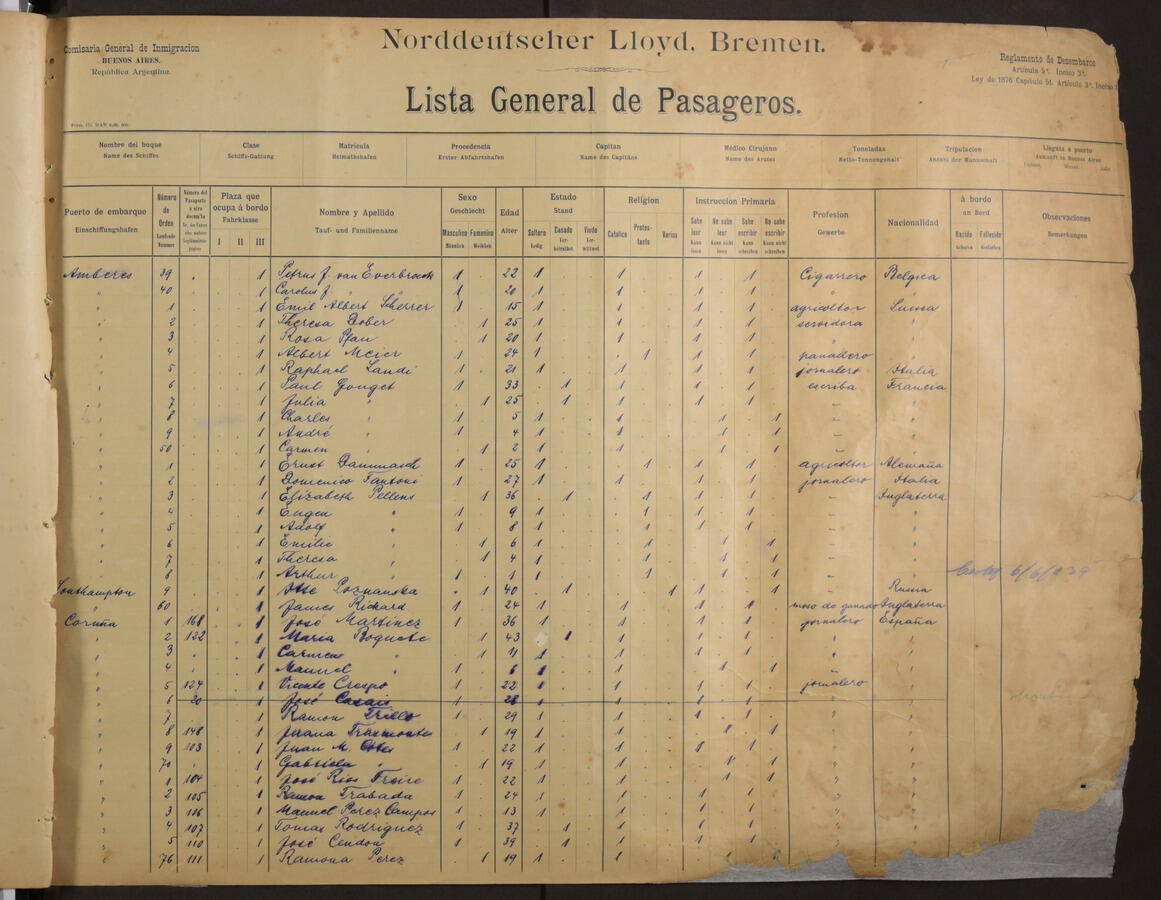 Comisaria General de Inmigracion
BUENOS AIRES.
República Argentina.
Norddeutscher Lloyd, Bremen.
Lista General de Pasageros.
Reglamento de Desembarco
Artículo 5º. Inciso 3º
Ley de 1876 Capítulo 5º. Artículo 3º. Inciso
Nombre del buque Clase Matricula Procedencia Capitan Médico Cirujano Toneladas Tripulacion Llegata a puerto
Name des Schiffes Schiffs-Gattung Heimathshafen Erster Abfahrtshafen Name des Capitäns Name des Arztes Netto-Tonnengehalt Anzahl der Mannschaft Ankunft in Buenos Aires
Puerto de embarque Número de Orden Plaza que ocupa á bordo Nombre y Apellido Sexo Edad Estado Religion Instruccion Primaria Profesion Nacionalidad á bordo Observaciones
Einschiffungshafen Laufende Nummer Fahrklasse Tauf- und Familienname Geschlecht Alter Stand Gewerbe an Bord Bemerkungen
I II III Masculino Femenino Soltero Casado Viudo Catolica Protestante Varios Sabe leer No sabe leer Sabe escribir No sabe escribir Nacido Fallecido
Männlich Weiblich Ledig Verheirathet Verwittwet Kann lesen Kann nicht lesen Kann schreiben Kann nicht schreiben Geboren Gestorben
Amberes 39 1 Petrus J. van Everbroeck 1 22 1 1 1 1 Cigarrero Belgica
" 40 1 Carolus J. " " 1 20 1 1 1 1 " "
" 1 1 Emil Albert Scherrer 1 15 1 1 1 1 agricoltor Suissa
" 2 1 Theresa Dober 1 25 1 1 1 1 servidora "
" 3 1 Rosa Pfau 1 20 1 1 1 1 "
" 4 1 Albert Meier 1 24 1 1 1 1 panadero "
" 5 1 Raphael Landi 1 21 1 1 1 1 jornalero Italia
" 6 1 Paul Gouget 1 33 1 1 1 1 escriba Francia
" 7 1 Julia " 1 25 1 1 1 1 - "
" 8 1 Charles " 1 5 1 1 1 1 - "
" 9 1 André " 1 4 1 1 1 1 - "
" 50 1 Carmen " 1 2 1 1 1 1 - "
" 1 1 Ernst Dammasch 1 25 1 1 1 1 agricoltor Alemaña
" 2 1 Domenico Fantoni 1 27 1 1 1 1 jornalero Italia
" 3 1 Elizabeth Pellens 1 36 1 1 1 1 - Inglaterra
" 4 1 Eugen " 1 9 1 1 1 1 - "
" 5 1 Adolf " 1 8 1 1 1 1 - "
" 6 1 Emilie " 1 6 1 1 1 1 - "
" 7 1 Theresa " 1 4 1 1 1 1 - "
" 8 1 Arthur " 1 1 1 1 1 1 - " 6/6/034
Southampton 9 1 Poznanska 1 40 1 1 1 - Russia
" 60 1 James Richard 1 24 1 1 1 1 moso de ganado Inglaterra
Coruña 1 168 1 José Martinez 1 36 1 1 1 1 jornalero España
" 2 122 1 Maria Boquete 1 43 1 1 1 1 - "
" 3 " 1 Carmen " 1 11 1 1 1 1 - "
" 4 " 1 Manuel " 1 6 1 1 1 1 - "
" 5 124 1 Vicente Crespo 1 22 1 1 1 1 jornalero "
" 6 20 1 José Casais 1 28 1 1 1 1 " "
" 7 1 Ramon Trillo 1 29 1 1 1 1 " "
" 8 148 1 Juana Trasmonte 1 19 1 1 1 1 " "
" 9 103 1 Juan M. Cotes 1 22 1 1 1 1 " "
" 70 " 1 Gabriela " 1 19 1 1 1 1 " "
" 1 104 1 José Rios Freire 1 22 1 1 1 1 " "
" 2 105 1 Ramon Trabada 1 24 1 1 1 1 " "
" 3 106 1 Manuel Perez Campos 1 13 1 1 1 1 " "
" 4 107 1 Tomas Rodriguez 1 37 1 1 1 1 " "
" 5 110 1 José Cendon 1 39 1 1 1 1 " "
" 76 111 1 Ramona Perez 1 19 1 1